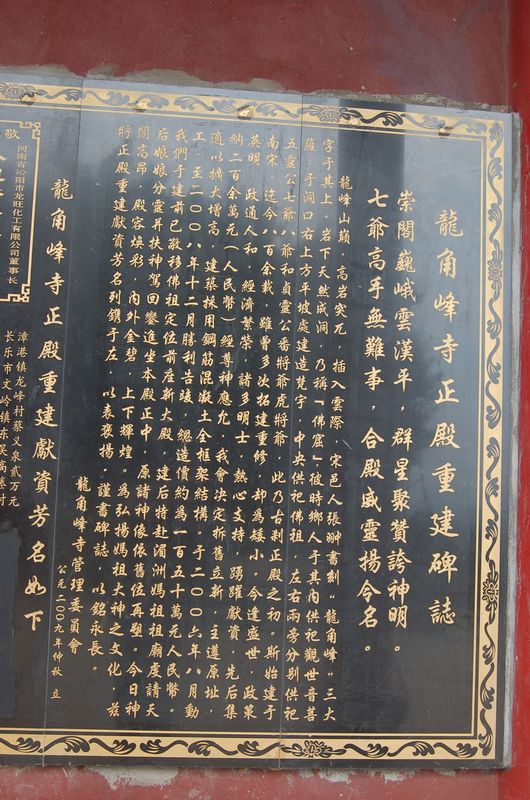 龍角峰寺正殿重建碑誌
崇閣巍峨雲漢平，群星聚贊誇神明。
七爺高手無難事，合殿威靈揚今名。
龍峰山巔，高岩突兀，插入雲際，宋邑人張翀書刻“龍角峰”三大
字于其上。岩下天然成洞，乃稱「佛窟」，彼時鄉人于其內供祀觀世音菩
薩；于洞口右上方平坡處建造梵宇，中央供祀佛祖，左右兩旁分别供祀
五靈公七爺八爺和貞靈公番將爺虎將爺，此乃古刹正殿之初。斯始建于
南宋，迄今八百余載，雖曾多次拓建重修，却為矮小。今逢盛世，政策
英明，政通人和，經濟繁榮，諸多明士，熱心支持，踴躍獻資，先后集
納二百余萬元（人民幣）經尊神應允，我會決定拆舊立新，主遵原址，
適以擴大增高，建築採用鋼筋混凝土全框架結構，于二00六年八月動
工，至二00八年十二月勝利告竣，總造價約為一百五十萬元人民幣。
我們于建前已敬移佛祖定位前座新大殿，建后特赴湄洲媽祖祖廟虔請天
后娘娘分靈并扶神駕回鑾進坐本殿正中，原諸神像依舊位再塑。今日神
閣高昂，殿容焕彩，内外金碧，上下輝煌。爲弘揚媽祖大神之文化，兹
將正殿重建獻資芳名列鐫于左，以表褒揚，謹書碑誌，以銘永長。
龍角峰寺管理委員會
公元二00九年仲秋 立
龍角峰寺正殿重建獻資芳名如下
漳港镇龙峰村蔡义泉贰万元
长乐市文岭镇东吴高楼村
敬
河南省沁阳市龙旺化工有限公司董事长